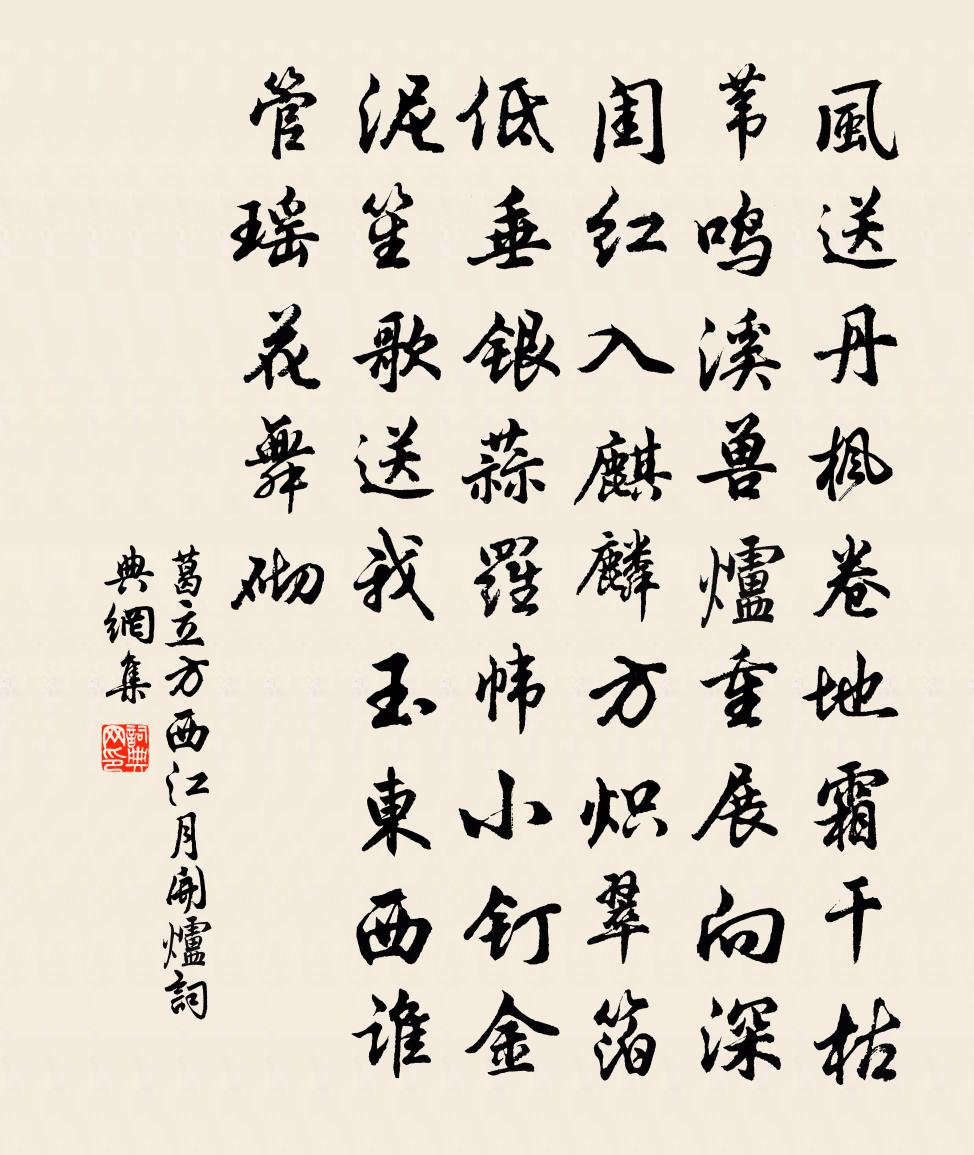 風送丹楓卷地霜干枯
苇鸣溪兽爐重展向深
闺红入麒麟方炽翠箔
低垂银蒜羅帏小钉金
泥笙歌送我玉東西谁
管瑶花舞砌
葛立方西江月開爐詞
典網集
詞典网印